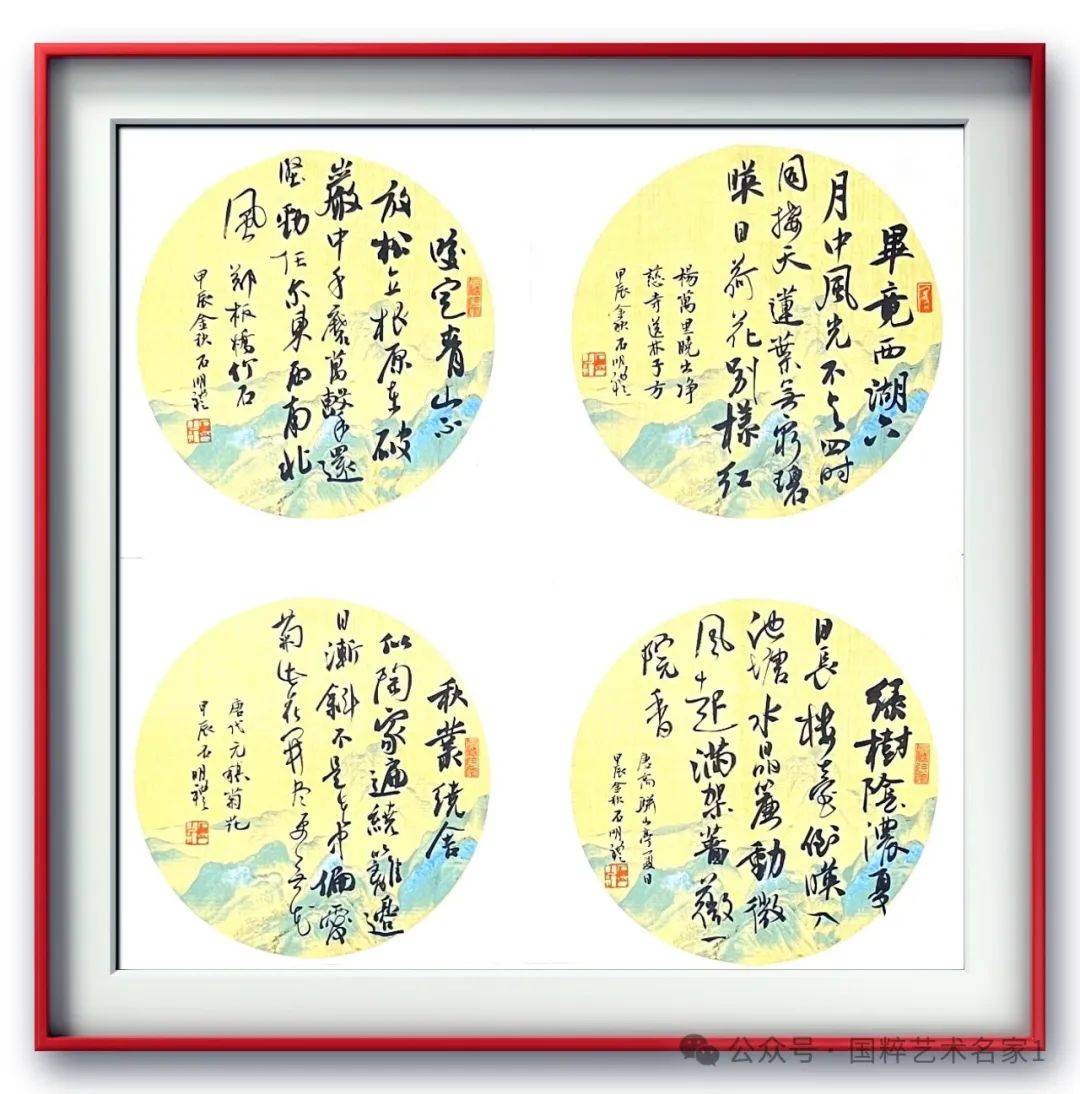 畢竟西湖六
月中風光不与四时
同接天蓮葉無窮碧
暎日荷花别樣红
楊萬里曉出净
慈寺送林子方
甲辰金秋石明礼
咬定青山不
放松立根原在破
巖中千磨萬擊還
堅勁任尔東西南北
風 郑板橋竹石
甲辰金秋石明礼
绿樹陰濃夏
日長楼臺倒暎入
池塘水晶簾動微
風起满架蔷薇一
院香
唐高骈山亭夏日
甲辰金秋石明礼
秋叢绕舍
似陶家遍繞籬邊
日漸斜不是花中偏愛
菊此花開尽更無花
唐代元稹菊花
甲辰石明禮
公众号·国粹艺术名家1